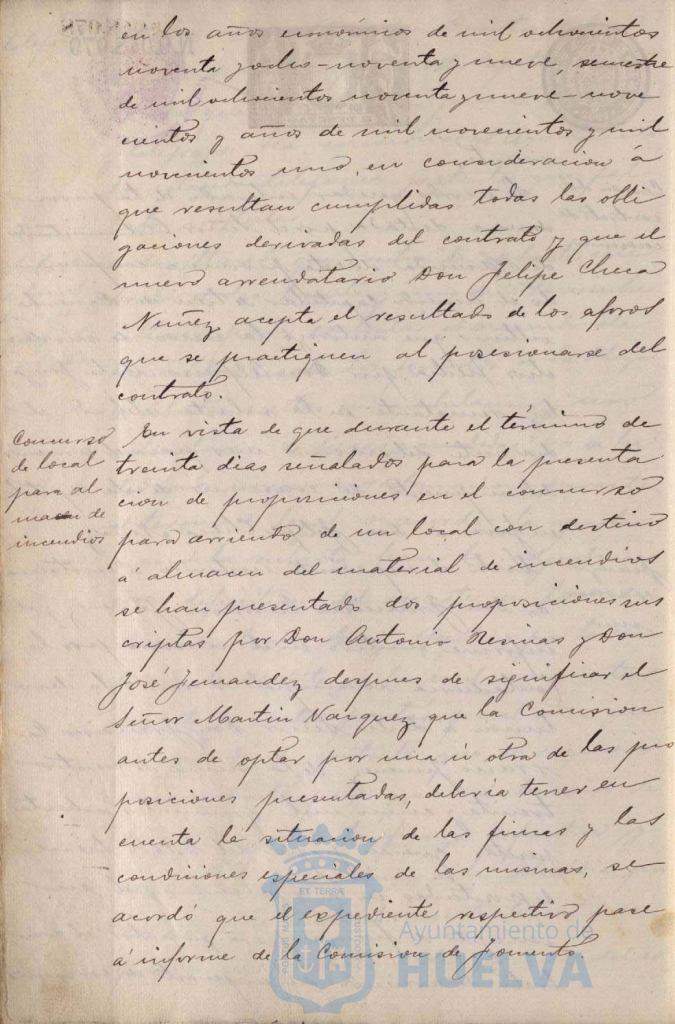 en los años económicos de mil ochocientos
noventa y ocho-noventa y nueve, semestre
de mil ochocientos noventa y nueve-nove
cientos y años de mil novecientos y mil
novecientos uno, en consideracion á
que resultan cumplidas todas las obli
gaciones derivadas del contrato y que el
nuevo arrendatario Don Felipe Checa
Nuñez acepta el resultado de los aforos
que se practiquen al posesionarse del
contrato.
Concurso
de local
para al
macen de
incendios
En vista de que durante el término de
treinta dias señalados para la presenta
cion de proposiciones en el concurso
para arriendo de un local con destino
á almacen del material de incendios
se han presentado dos proposiciones sus
criptas por Don Antonio Resinas y Don
José Fernandez despues de significar el
Señor Martin Vazquez que la Comision
antes de optar por una ú otra de las pro
posiciones presentadas, deberia tener en
cuenta la situacion de las fincas y las
condiciones especiales de las mismas, se
acordó que el expediente respectivo pase
á informe de la Comision de Fomento.
ET TERRÆ
Ayuntamiento de
HUELVA